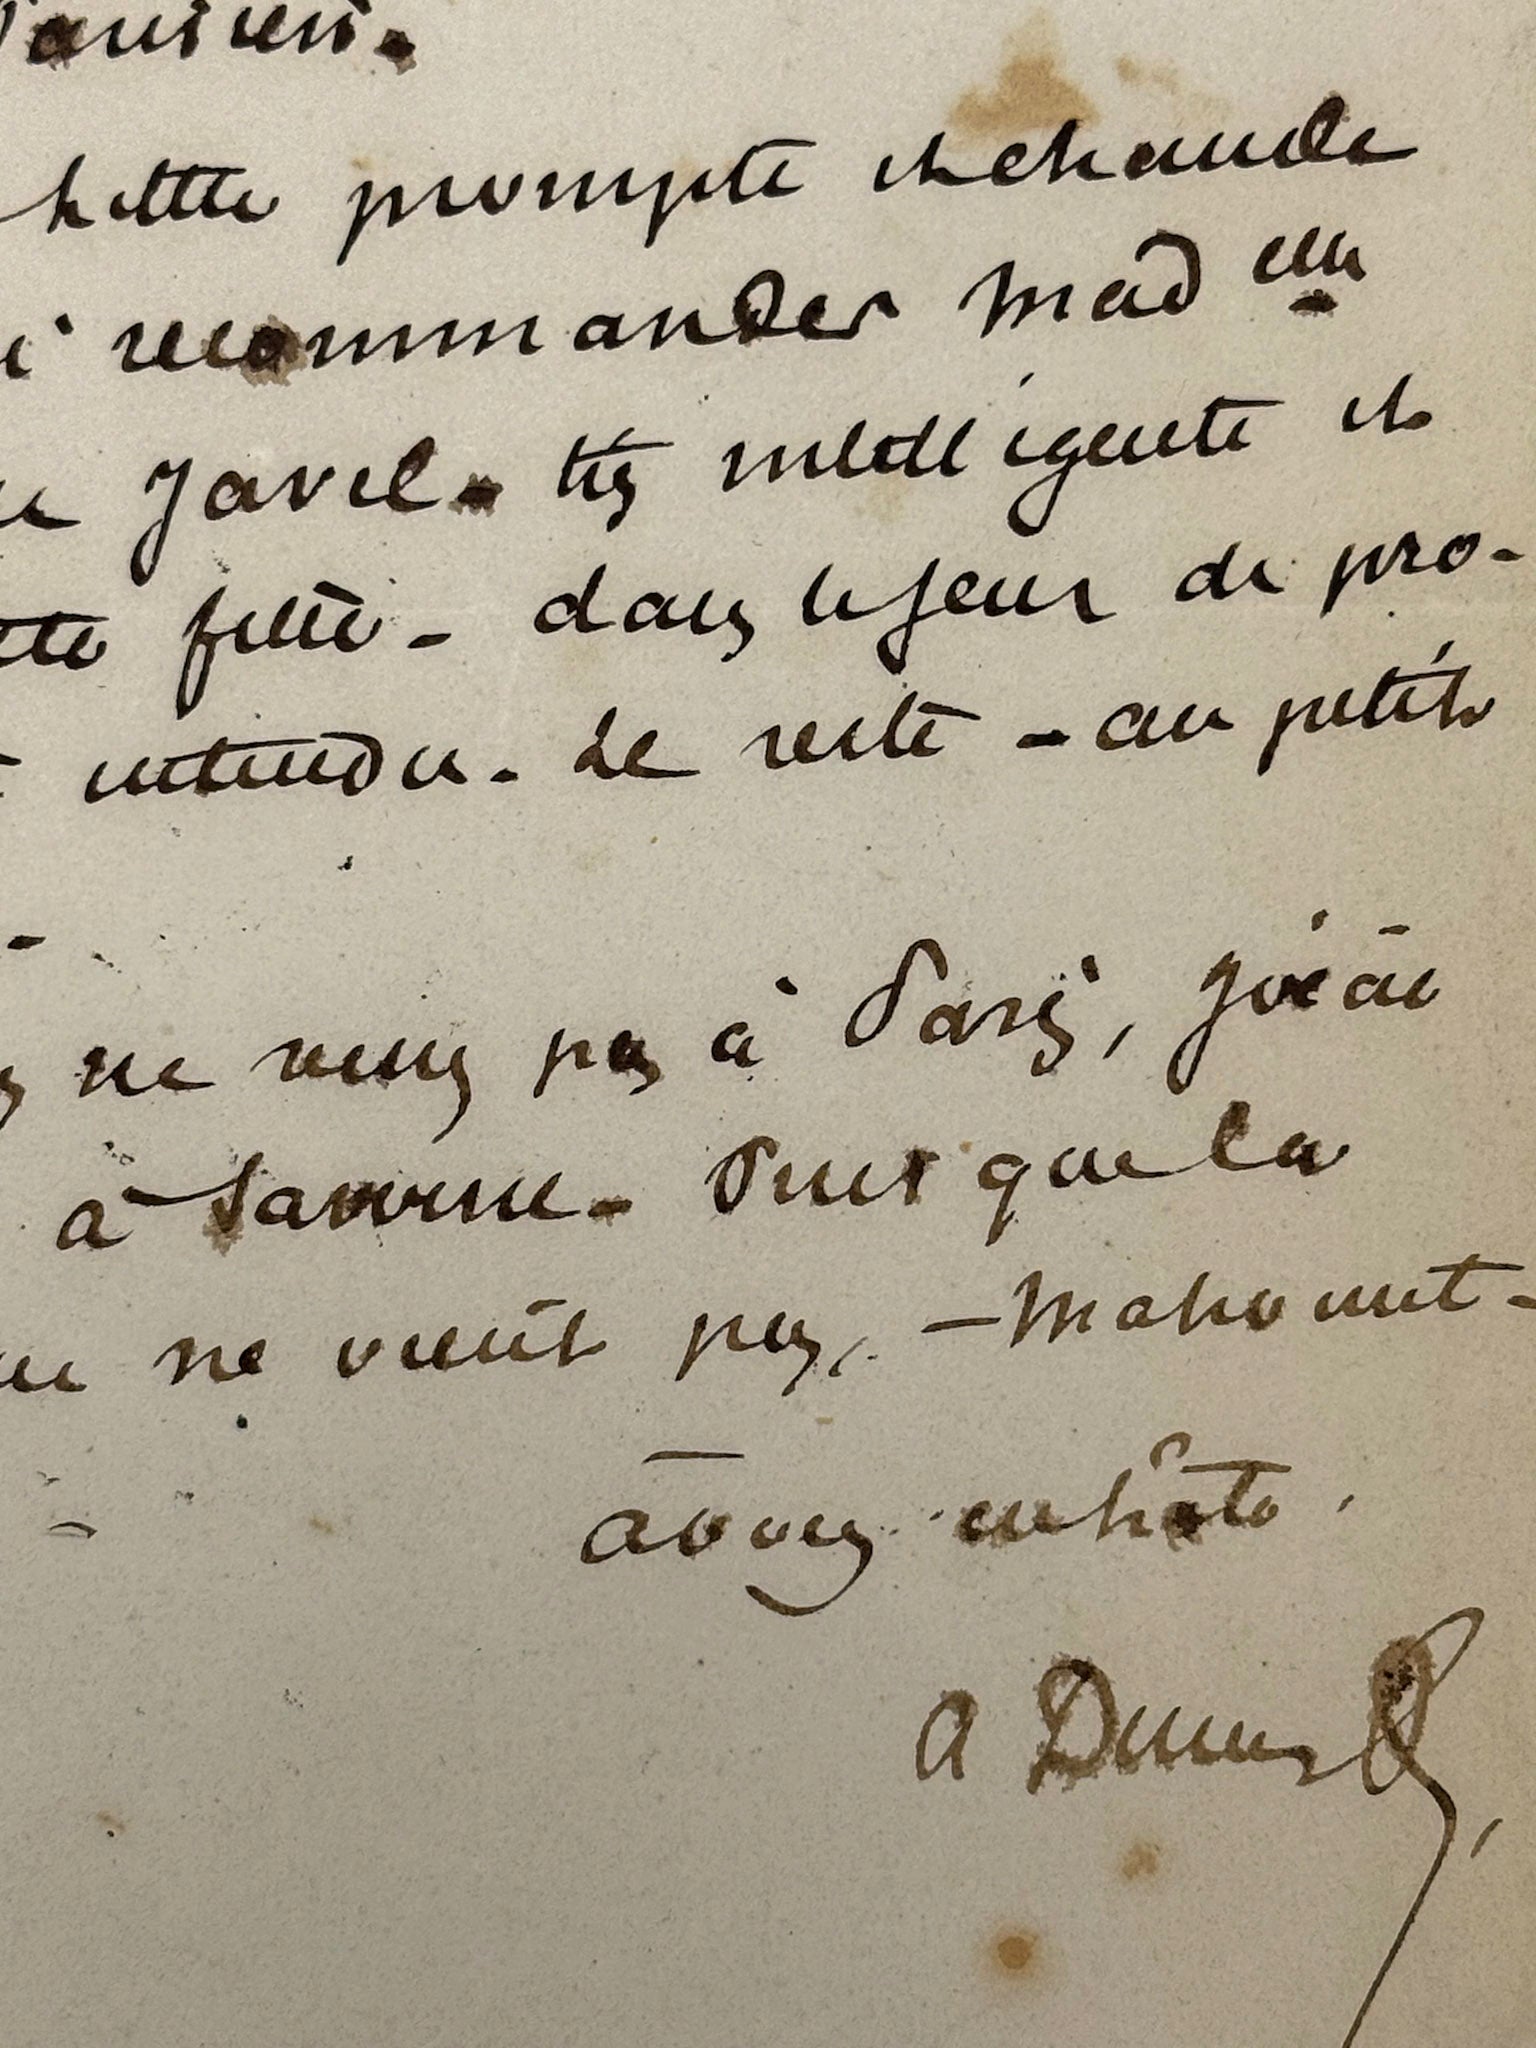 lettre prompte et chaude
recommander Mad elle
Javel. très intelligente et
fille - dans le jeux de pro-
entendu. Le reste - au petit
-
ne venez pas à Paris, j'irai
à Saverne. Puisque la
ne vient pas, - Mahomet -
à vous en hâte.
A Dumas